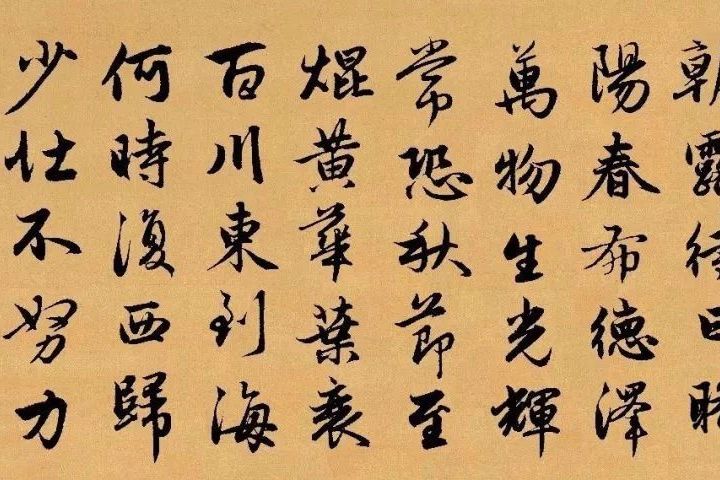 朝露待日晞
陽春布德澤
萬物生光輝
常恐秋節至
焜黃華葉衰
百川東到海
何時復西歸
少壯不努力